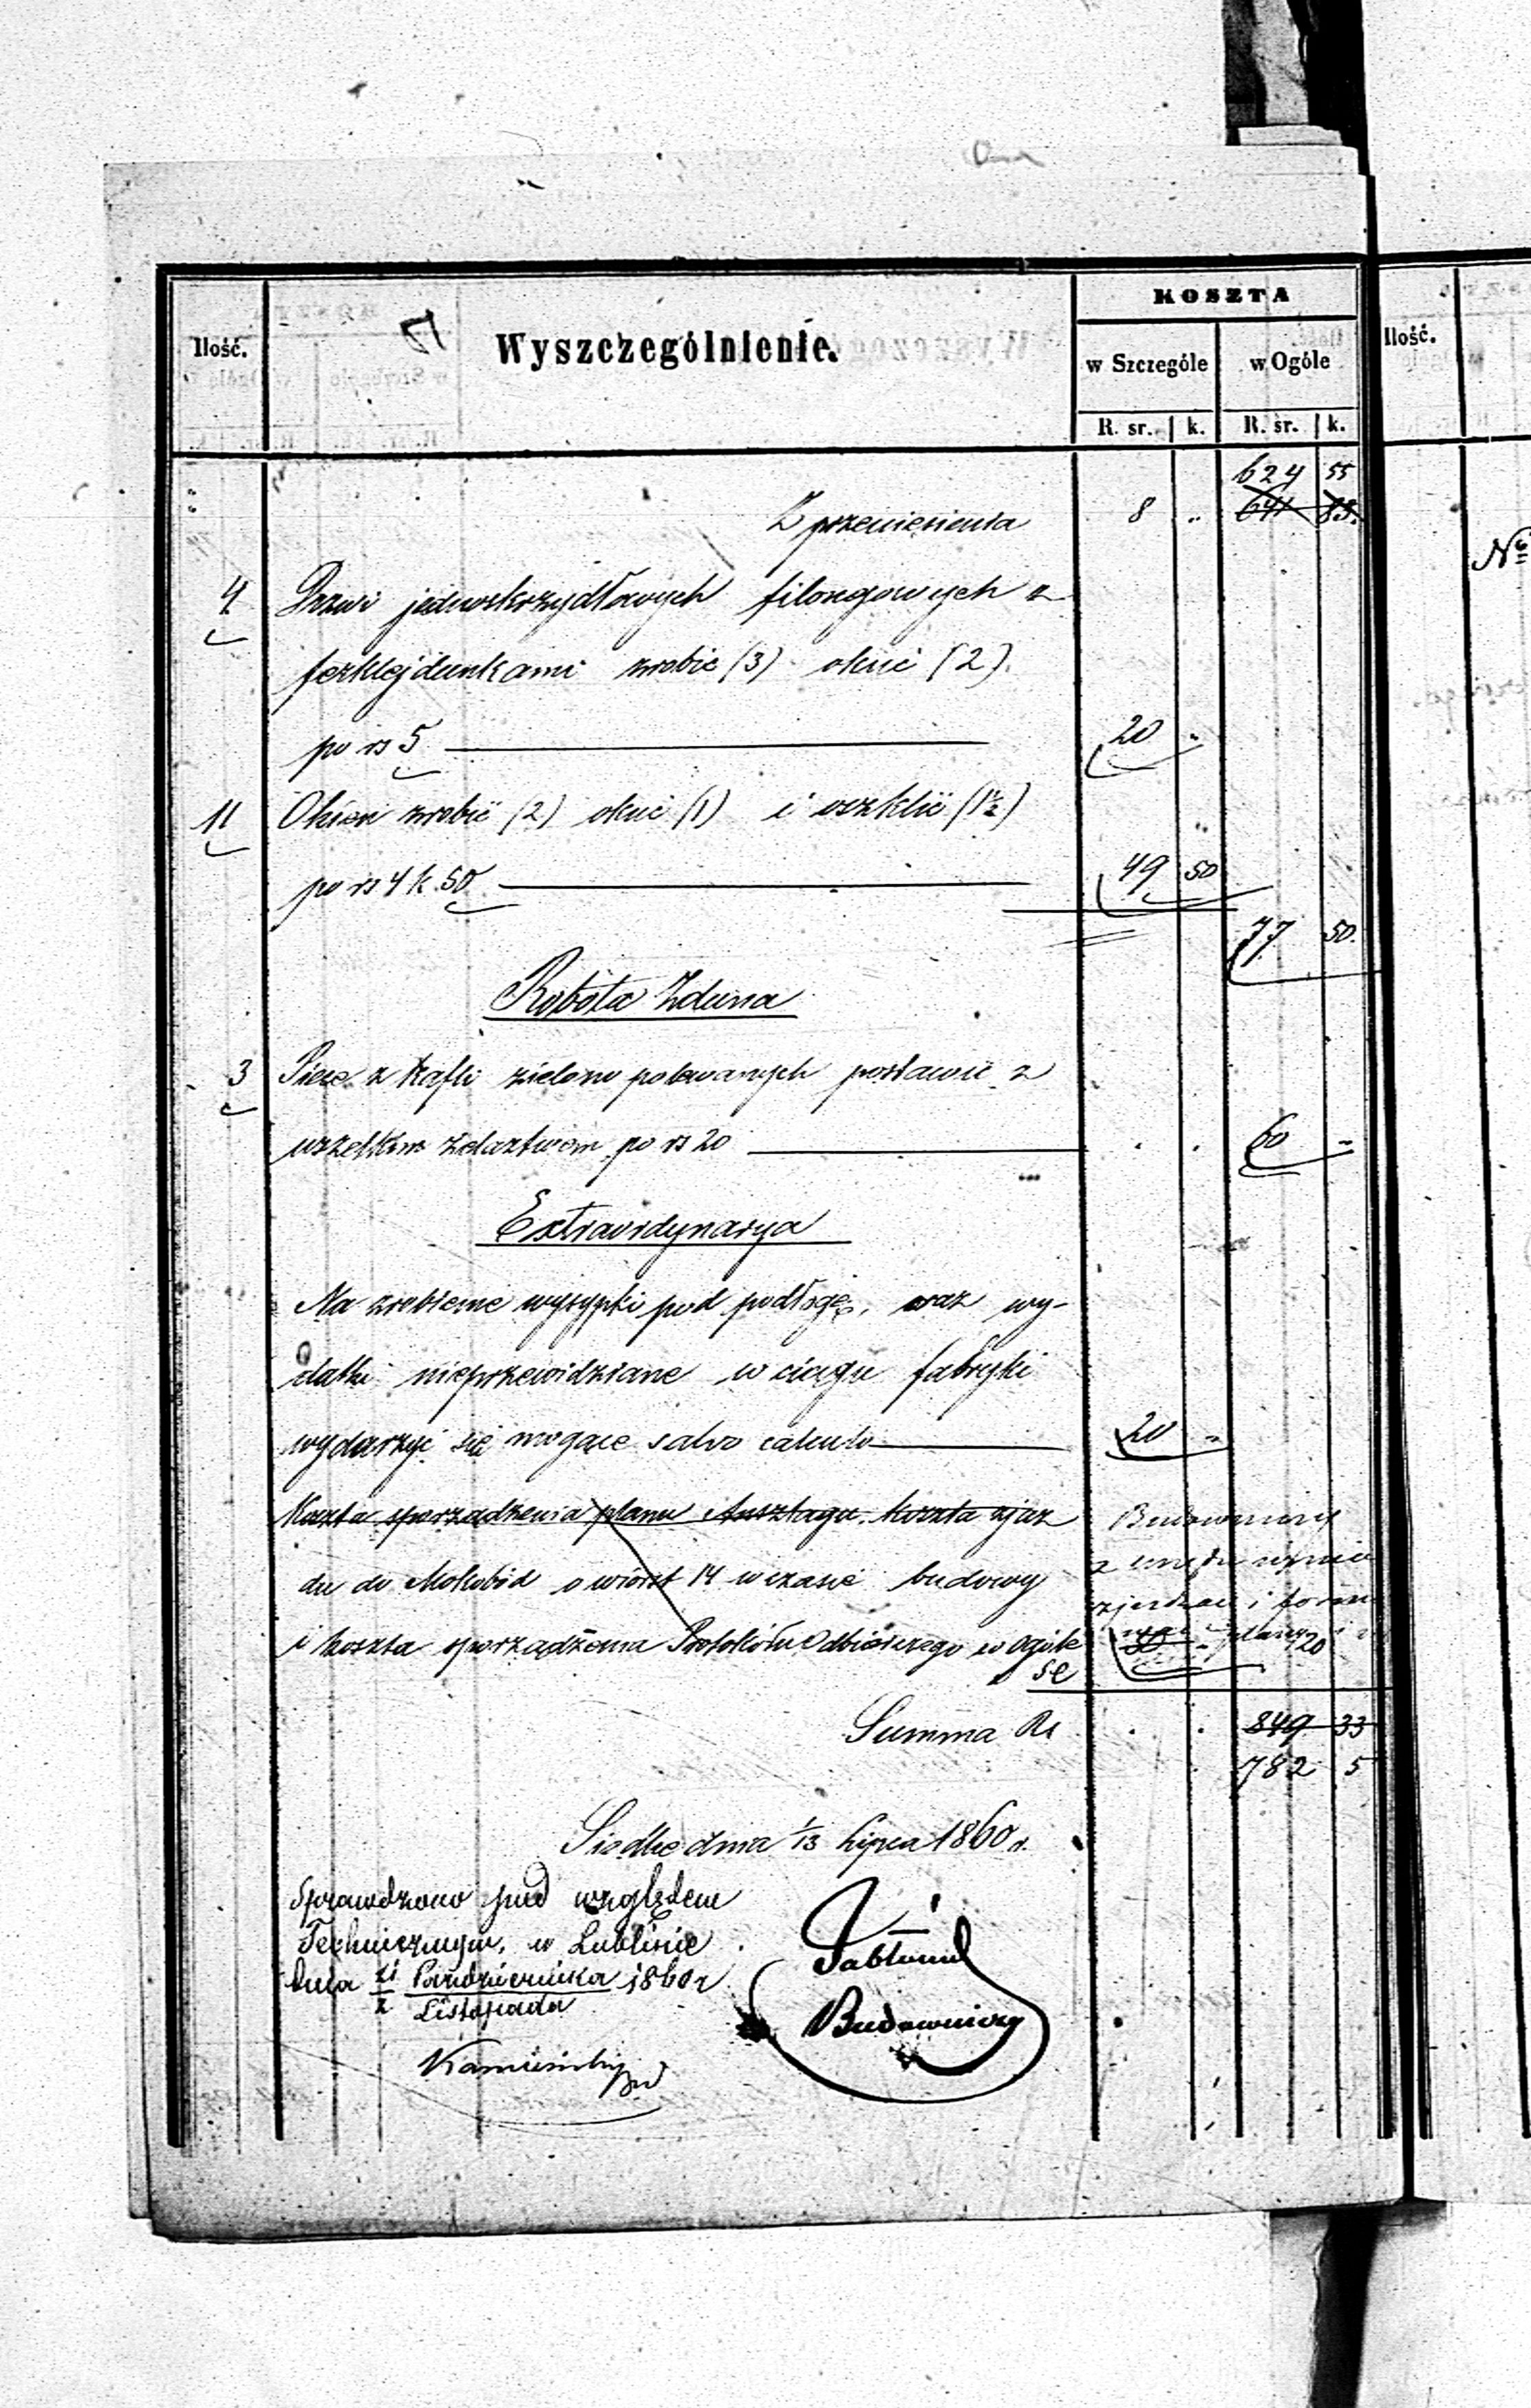 KOSZTA
Ilość. Wyszczególnienie. w Szczególe w Ogóle Ilość.
R. sr. k. R. sr. k.
624 55
Z przeniesienia 8 „ 641 83.
4 Drzwi jednoskrzydłowych filongowych z
ferklejdunkami zrobić (3) okuć (2)
po rs 5 20 „
11 Okien zrobić (2) okuć (1) i oszklić (1½)
po rs 4 k. 50 49 50
77 50.
Robota Zduna
3 Piece z kafli zielono polewanych postawić z
wszelkiem żelaztwem po rs 20 60 „
Extraordynarya
Na zrobienie wysypki pod podłogę, oraz wy-
datki nieprzewidziane w ciągu fabryki
wydarzyć się mogące salvo calculo 20 „
Koszta sporządzenia planu Anszlagu. Koszta zjaz Budowniczy
du do Mokobód o wiorst 14 w czasie budowy z urzędu
i koszta sporządzenia Protokółu Odbiorczego w ogóle 50 20
Summa Rs 849 33
782 5
Siedlce dnia 1/13 Lipca 1860 r.
Sprawdzono pod względem
Technicznym, w Lublinie
dnia 21 Października / 2 Listopada 1860 r
Budowniczy
№